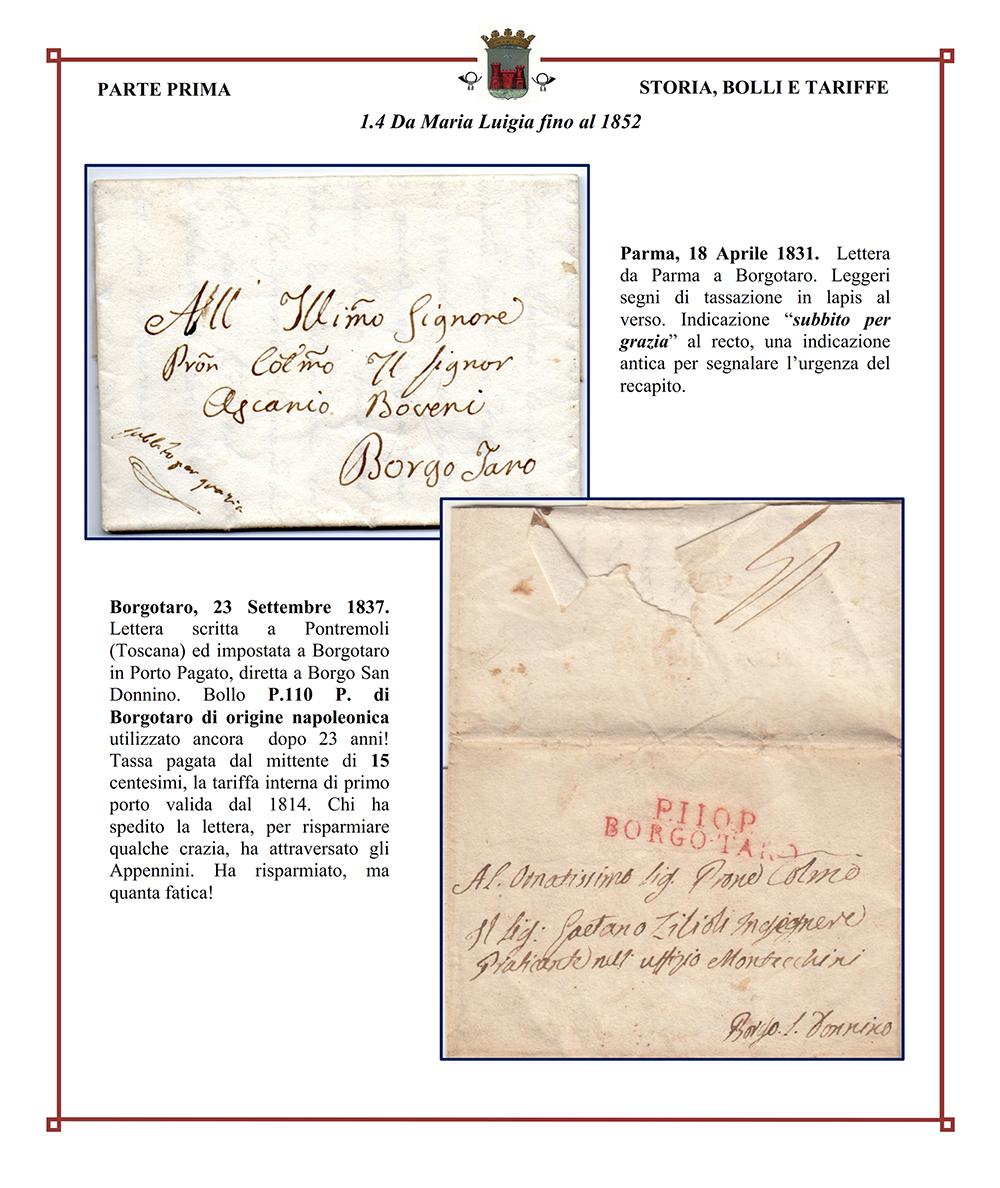 PARTE PRIMA
STORIA, BOLLI E TARIFFE
1.4 Da Maria Luigia fino al 1852
All' Illmo Signore
Pron Colmo Il Signor
Ascanio Boveri
Borgo Taro
subbito per grazia
Parma, 18 Aprile 1831. Lettera
da Parma a Borgotaro. Leggeri
segni di tassazione in lapis al
verso. Indicazione “subbito per
grazia” al recto, una indicazione
antica per segnalare l’urgenza del
recapito.
Borgotaro, 23 Settembre 1837.
Lettera scritta a Pontremoli
(Toscana) ed impostata a Borgotaro
in Porto Pagato, diretta a Borgo San
Donnino. Bollo P.110 P. di
Borgotaro di origine napoleonica
utilizzato ancora dopo 23 anni!
Tassa pagata dal mittente di 15
centesimi, la tariffa interna di primo
porto valida dal 1814. Chi ha
spedito la lettera, per risparmiare
qualche crazia, ha attraversato gli
Appennini. Ha risparmiato, ma
quanta fatica!
P.110.P.
BORGO-TARO
Al Ornatissimo Sig. Prone Colmo
Il Sig: Gaetano Zilioli Ingegnere
Praticante nell' uffizio Montecchini
Borgo S. Donnino